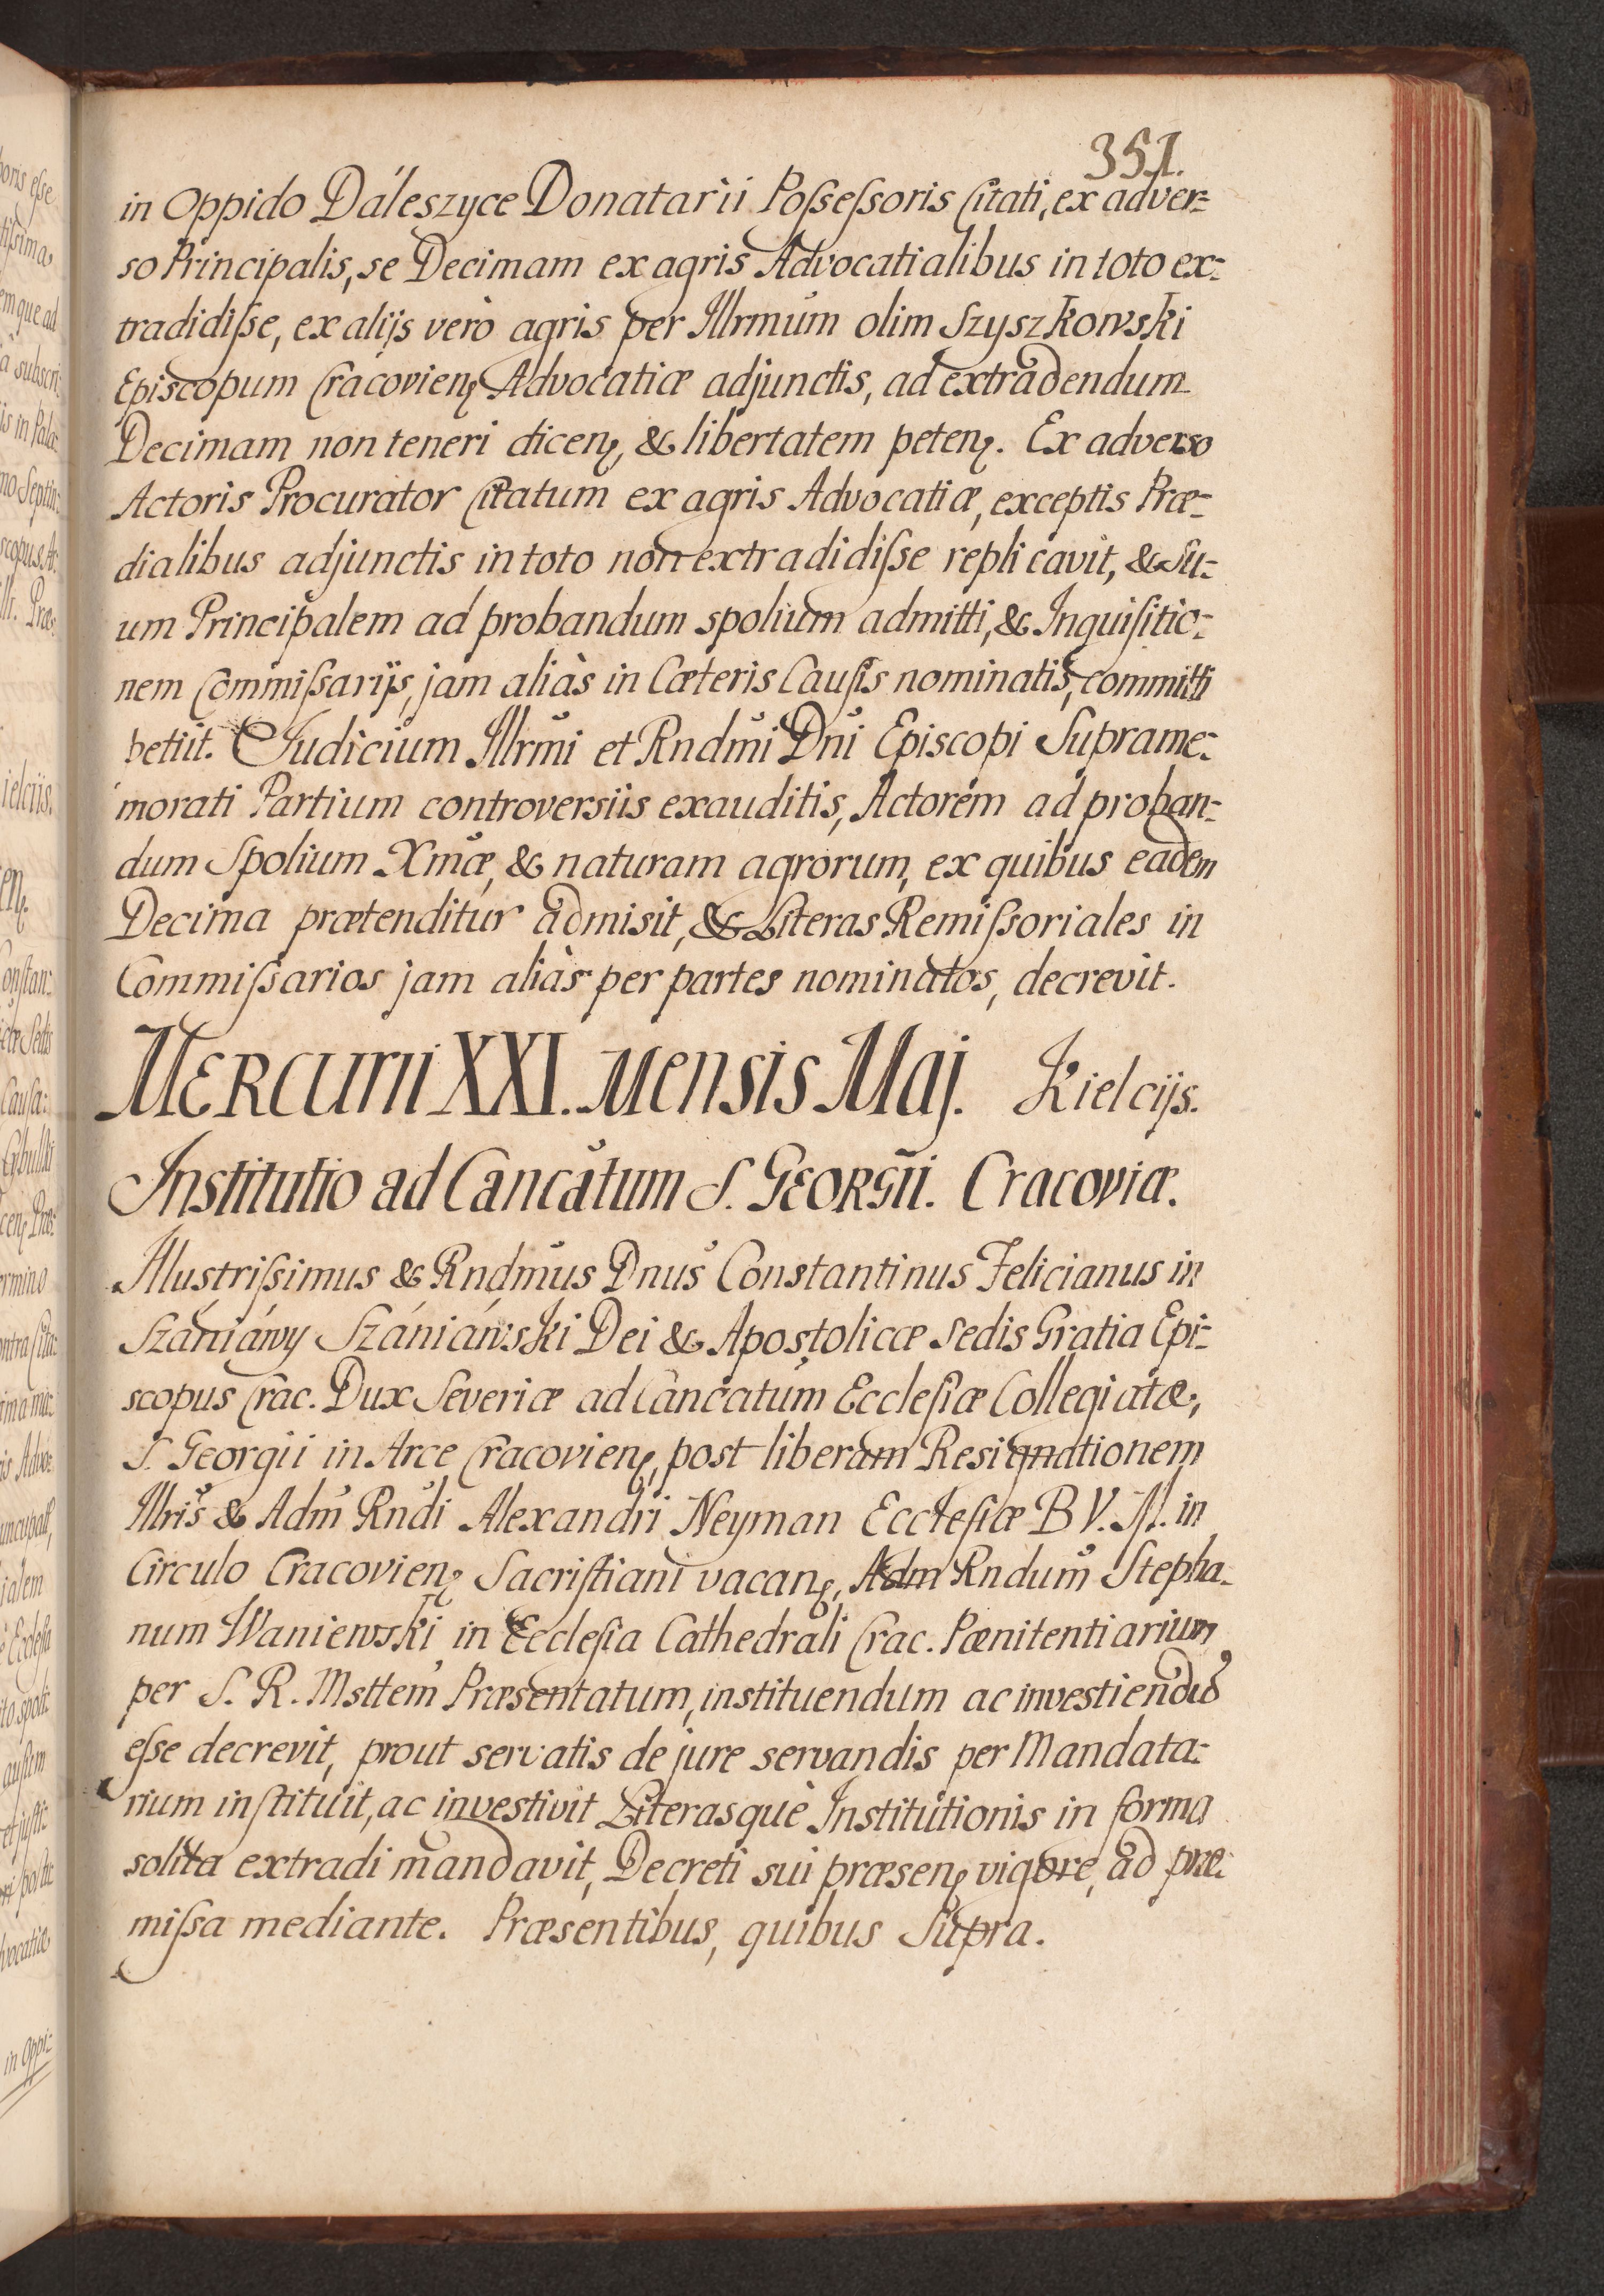 351.
in Oppido Dáleszyce Donatarii Poſseſsoris Citati, ex adver=
so Principalis, se Decimam ex agris Advocatialibus in toto ex=
tradidiſse, ex alijs verò agris per Illrmum olim Szyszkowski
Episcopum Cracovien Advocatiæ adjunctis, ad extradendum
Decimam non teneri dicen, & libertatem peten. Ex adverso
Actoris Procurator Citatum ex agris Advocatiæ, exceptis Præ=
dialibus adjunctis in toto non extradidiſse replicavit, & Su=
um Principalem ad probandum spolium admitti, & Inquiſitio=
nem Commiſsarijs, jam aliàs in Cæteris Cauſis nominatis, committi
petiit. Judicium Illrmi et Rndmi Dni Episcopi Suprame=
morati Partium controversiis exauditis, Actorem ad proban=
dum Spolium Xmæ, & naturam agrorum, ex quibus eadem
Decima prætenditur admisit, & Literas Remiſsoriales in
Commiſsarios jam aliàs per partes nominatos, decrevit.
Mercurii XXI. Mensis Maj. Kielcijs.
Institutio ad Cancatum S. Georgii. Cracoviæ.
Illustriſsimus & Rndmus Dnus Constantinus Felicianus in
Szániáwy Szániáwski Dei & Apostolicæ Sedis Gratia Epi=
scopus Crac. Dux Severiæ ad Cancatum Eccleſiæ Collegiatæ,
S. Georgii in Arce Cracovien, post liberam Resignationem
Illris & Adm Rndi Alexandri Neyman Eccleſiæ B V. M. in
Circulo Cracovien Sacriſtiani vacan, Adm Rndum Stepha=
num Waniewski in Eccleſia Cathedrali Crac. Pœnitentiarium
per S. R. Msttem Præsentatum, instituendum ac investiendū
eſse decrevit, prout servatis de jure servandis per Mandata=
rium inſtituit, ac investivit Literasquè Institutionis in forma
solita extradi mandavit, Decreti sui præsen vigore, ad præ=
miſsa mediante. Præsentibus, quibus Supra.